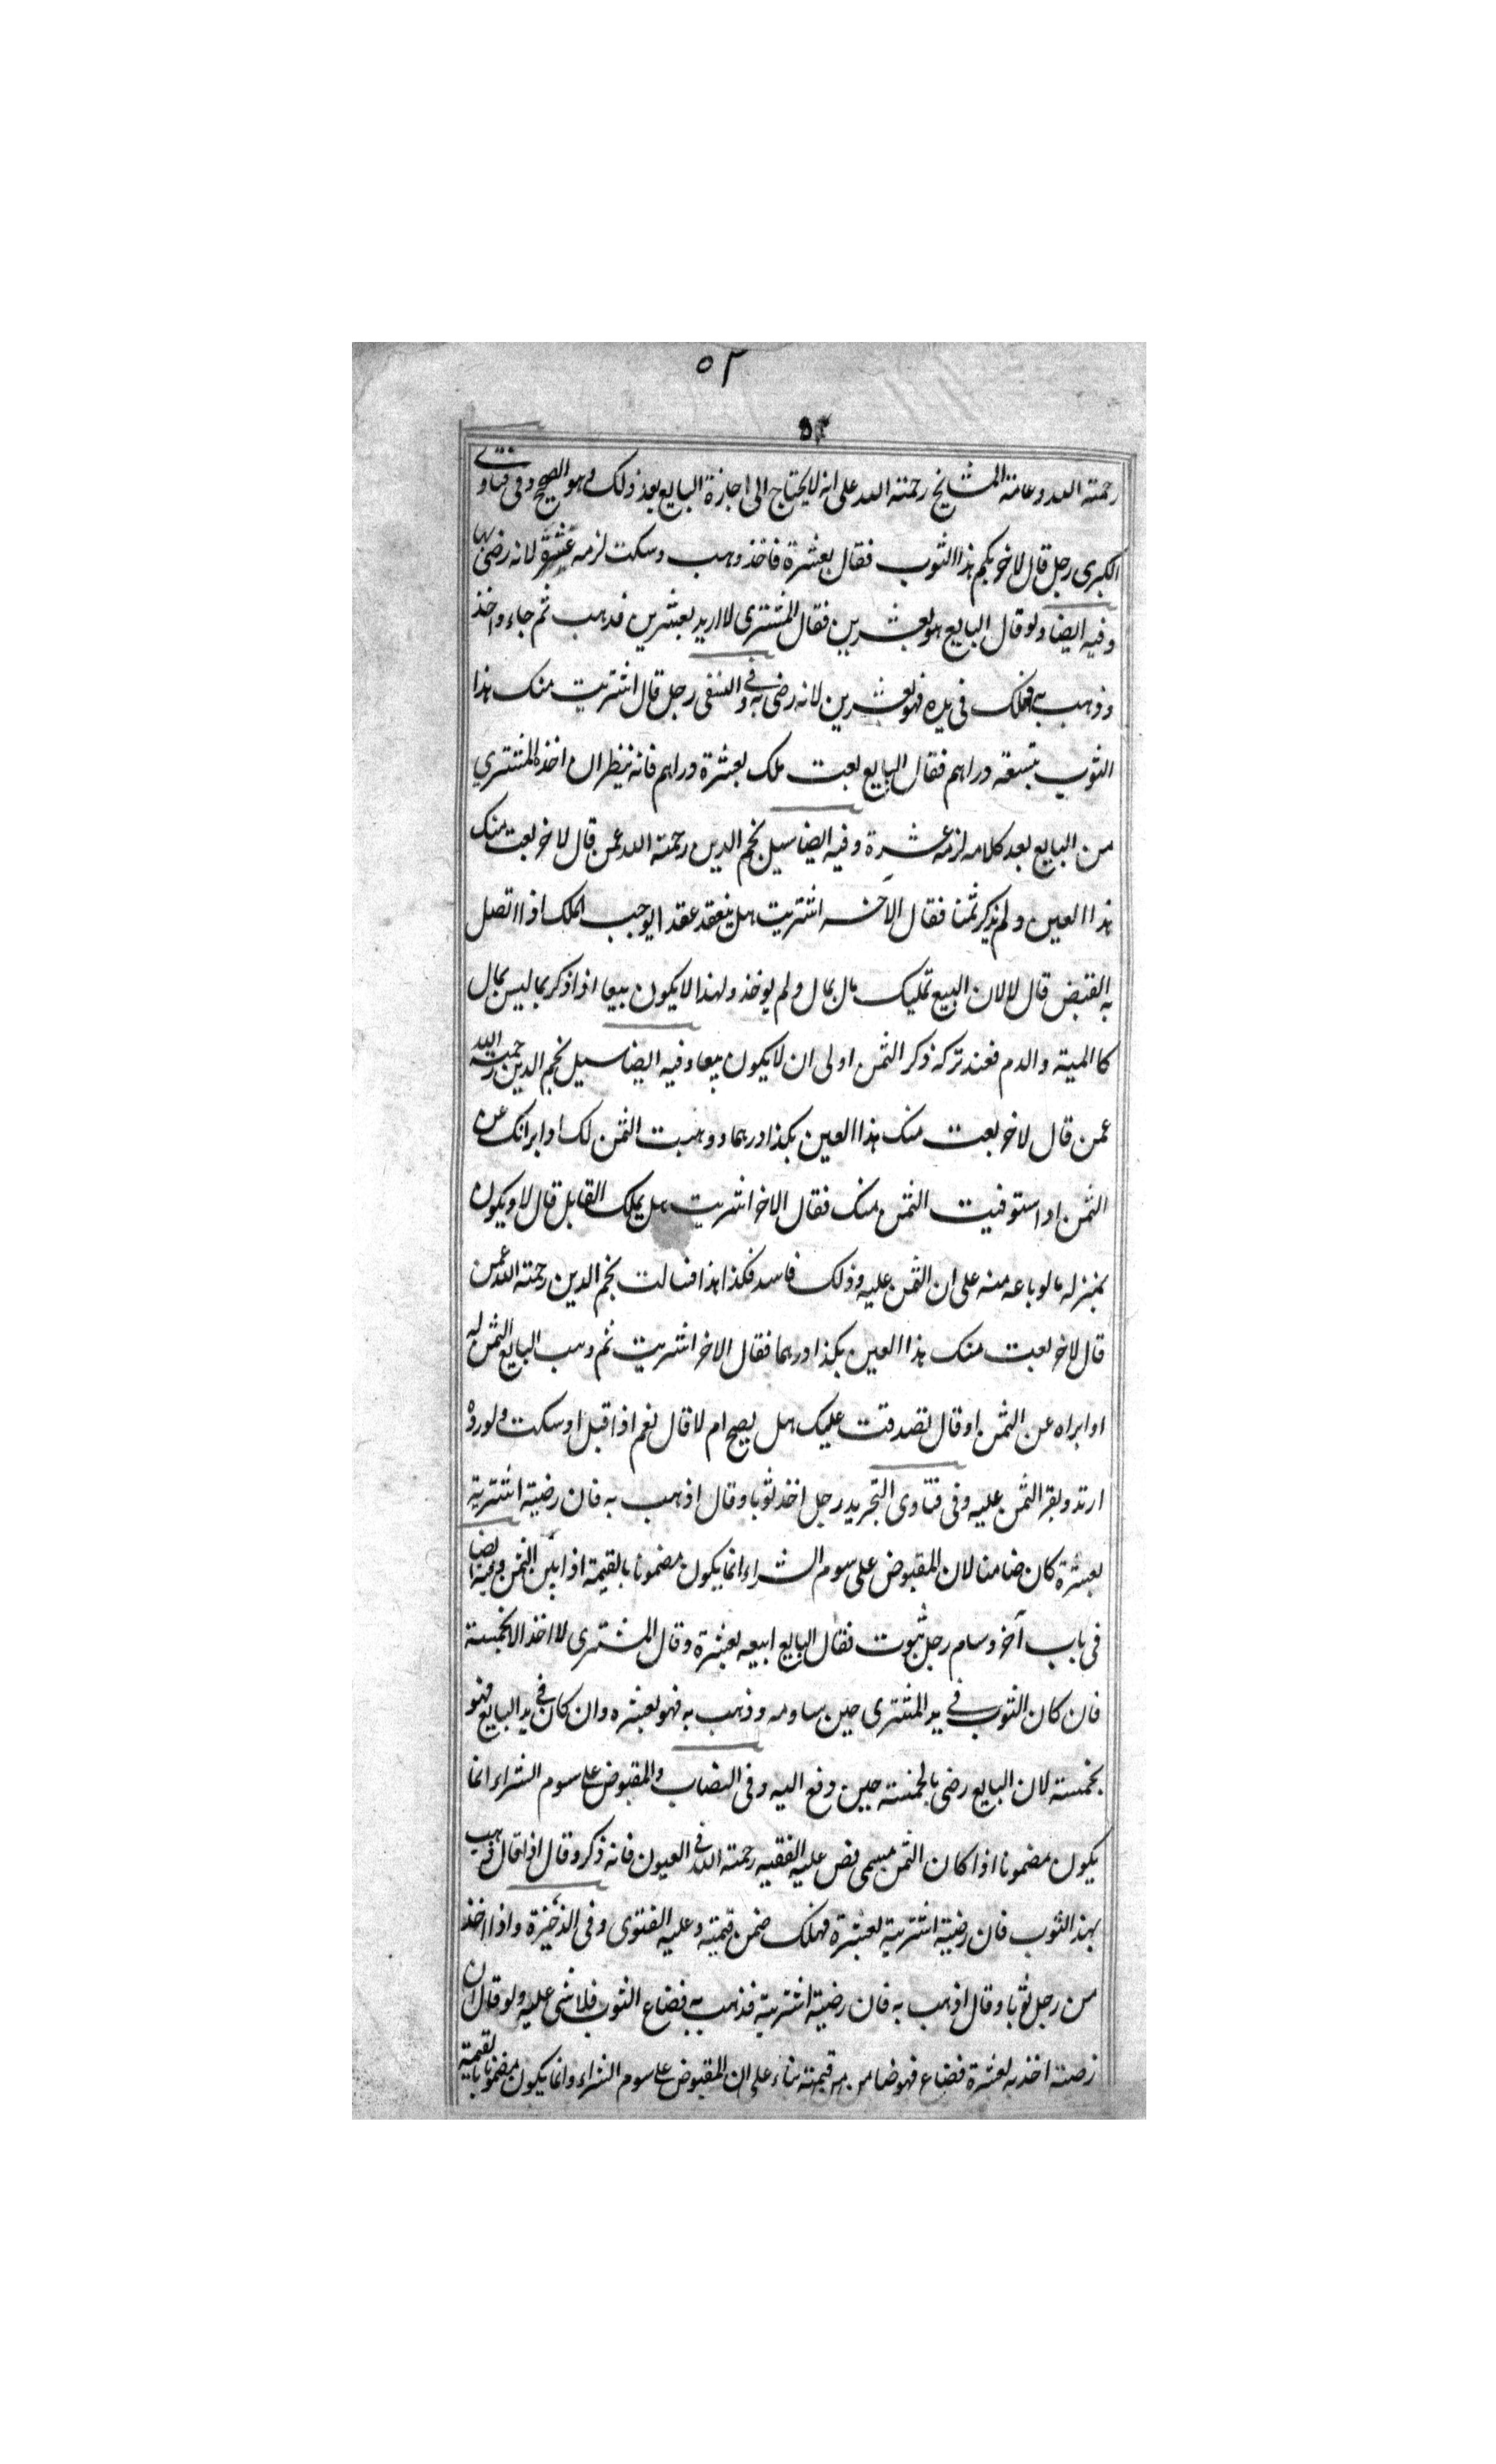 ٥٢
٥٢
رحمته الله وعامة المشايخ رحمته الله على انه لا يحتاج الى اجازة البايع بعد ذلك وهو الصحيح وفى فتاوى
الكبرى رجل قال لاخر بكم هذا الثوب فقال بعشرة فاخذ وذهب وسكت لزمه عشرة لانه رضى بها
وفيه ايضا ولو قال البايع هو بعشرين فقال المشترى لا اريد بعشرين فذهب ثم جاء واخذ
وذهب به فهلك فى يده فهو بعشرين لانه رضى به وفى النسفى رجل قال اشتريت منك هذا
الثوب بتسعة دراهم فقال البايع بعت ملك بعشرة دراهم فانه ينظر ان اخذه المشتري
من البايع بعد كلامه لزمه عشرة وفيه ايضا سيل نجم الدين رحمته الله عمن قال لاخر بعت منك
هذا العين ولم يذكر ثمنا فقال الاخر اشتريت هل ينعقد عقدا يوجب الملك اذا اتصل
به القبض قال لا لان البيع تمليك مال بمال ولم يوخذ ولهذا لا يكون بيعا اذا ذكر بما ليس بمال
كالميتة والدم فعند تركه ذكر الثمن اولى ان لا يكون بيعا وفيه ايضا سيل نجم الدين رحمته الله
عمن قال لاخر بعت منك هذا العين بكذا درهما ووهبت الثمن لك او ابراتك عن
الثمن او استوفيت الثمن منك فقال الاخر اشتريت هل يملك القابل قال لا ويكون
بمنزله ما لو باعه منه على ان الثمن عليه وذلك فاسد فكذا هذا نجم الدين رحمته الله عمن
قال لاخر بعت منك هذا العين بكذا درهما فقال الاخر اشتريت ثم وهب البايع الثمن له
او ابراه عن الثمن او قال تصدقت عليك هل يصح ام لا قال نعم اذا قبل او سكت ولو رده
ارتد وبقر الثمن عليه وفى فتاوى التجريد رجل اخذ ثوبا وقال اذهب به فان رضيته اشتريته
بعشرة كان ضامنا لان المقبوض على سوم الشراء انما يكون مضمونا بالقيمة اذا بين الثمن وفيه ايضا
فى باب آخر وسام رجل بثوب فقال البايع ابيعه بعشرة وقال المشترى لا اخذ الا بخمسة
فان كان الثوب فى يد المشترى حين ساومه وذهب به فهو بعشره وان كان فى يد البايع فهو
بخمسة لان البايع رضى بالخمسة حين دفع اليه وفى النصاب والمقبوض على سوم الشراء انما
يكون مضمونا اذا كان الثمن مسمى نص عليه الفقيه رحمته الله فى العيون فانه ذكر وقال اذا قال ذهب
بهذا الثوب فان رضيته اشتريته بعشرة فهلك ضمن قيمته وعليه الفتوى وفى الذخيرة واذا اخذ
من رجل ثوبا وقال اذهب به فان رضيته اشتريته فذهب به فضاع الثوب فلا شى عليه ولو قال ان
رضيته اخذته بعشرة فضاع فهو ضامن قيمته بناء على ان المقبوض على سوم الشراء وانما يكون مضمونا بالقيمة